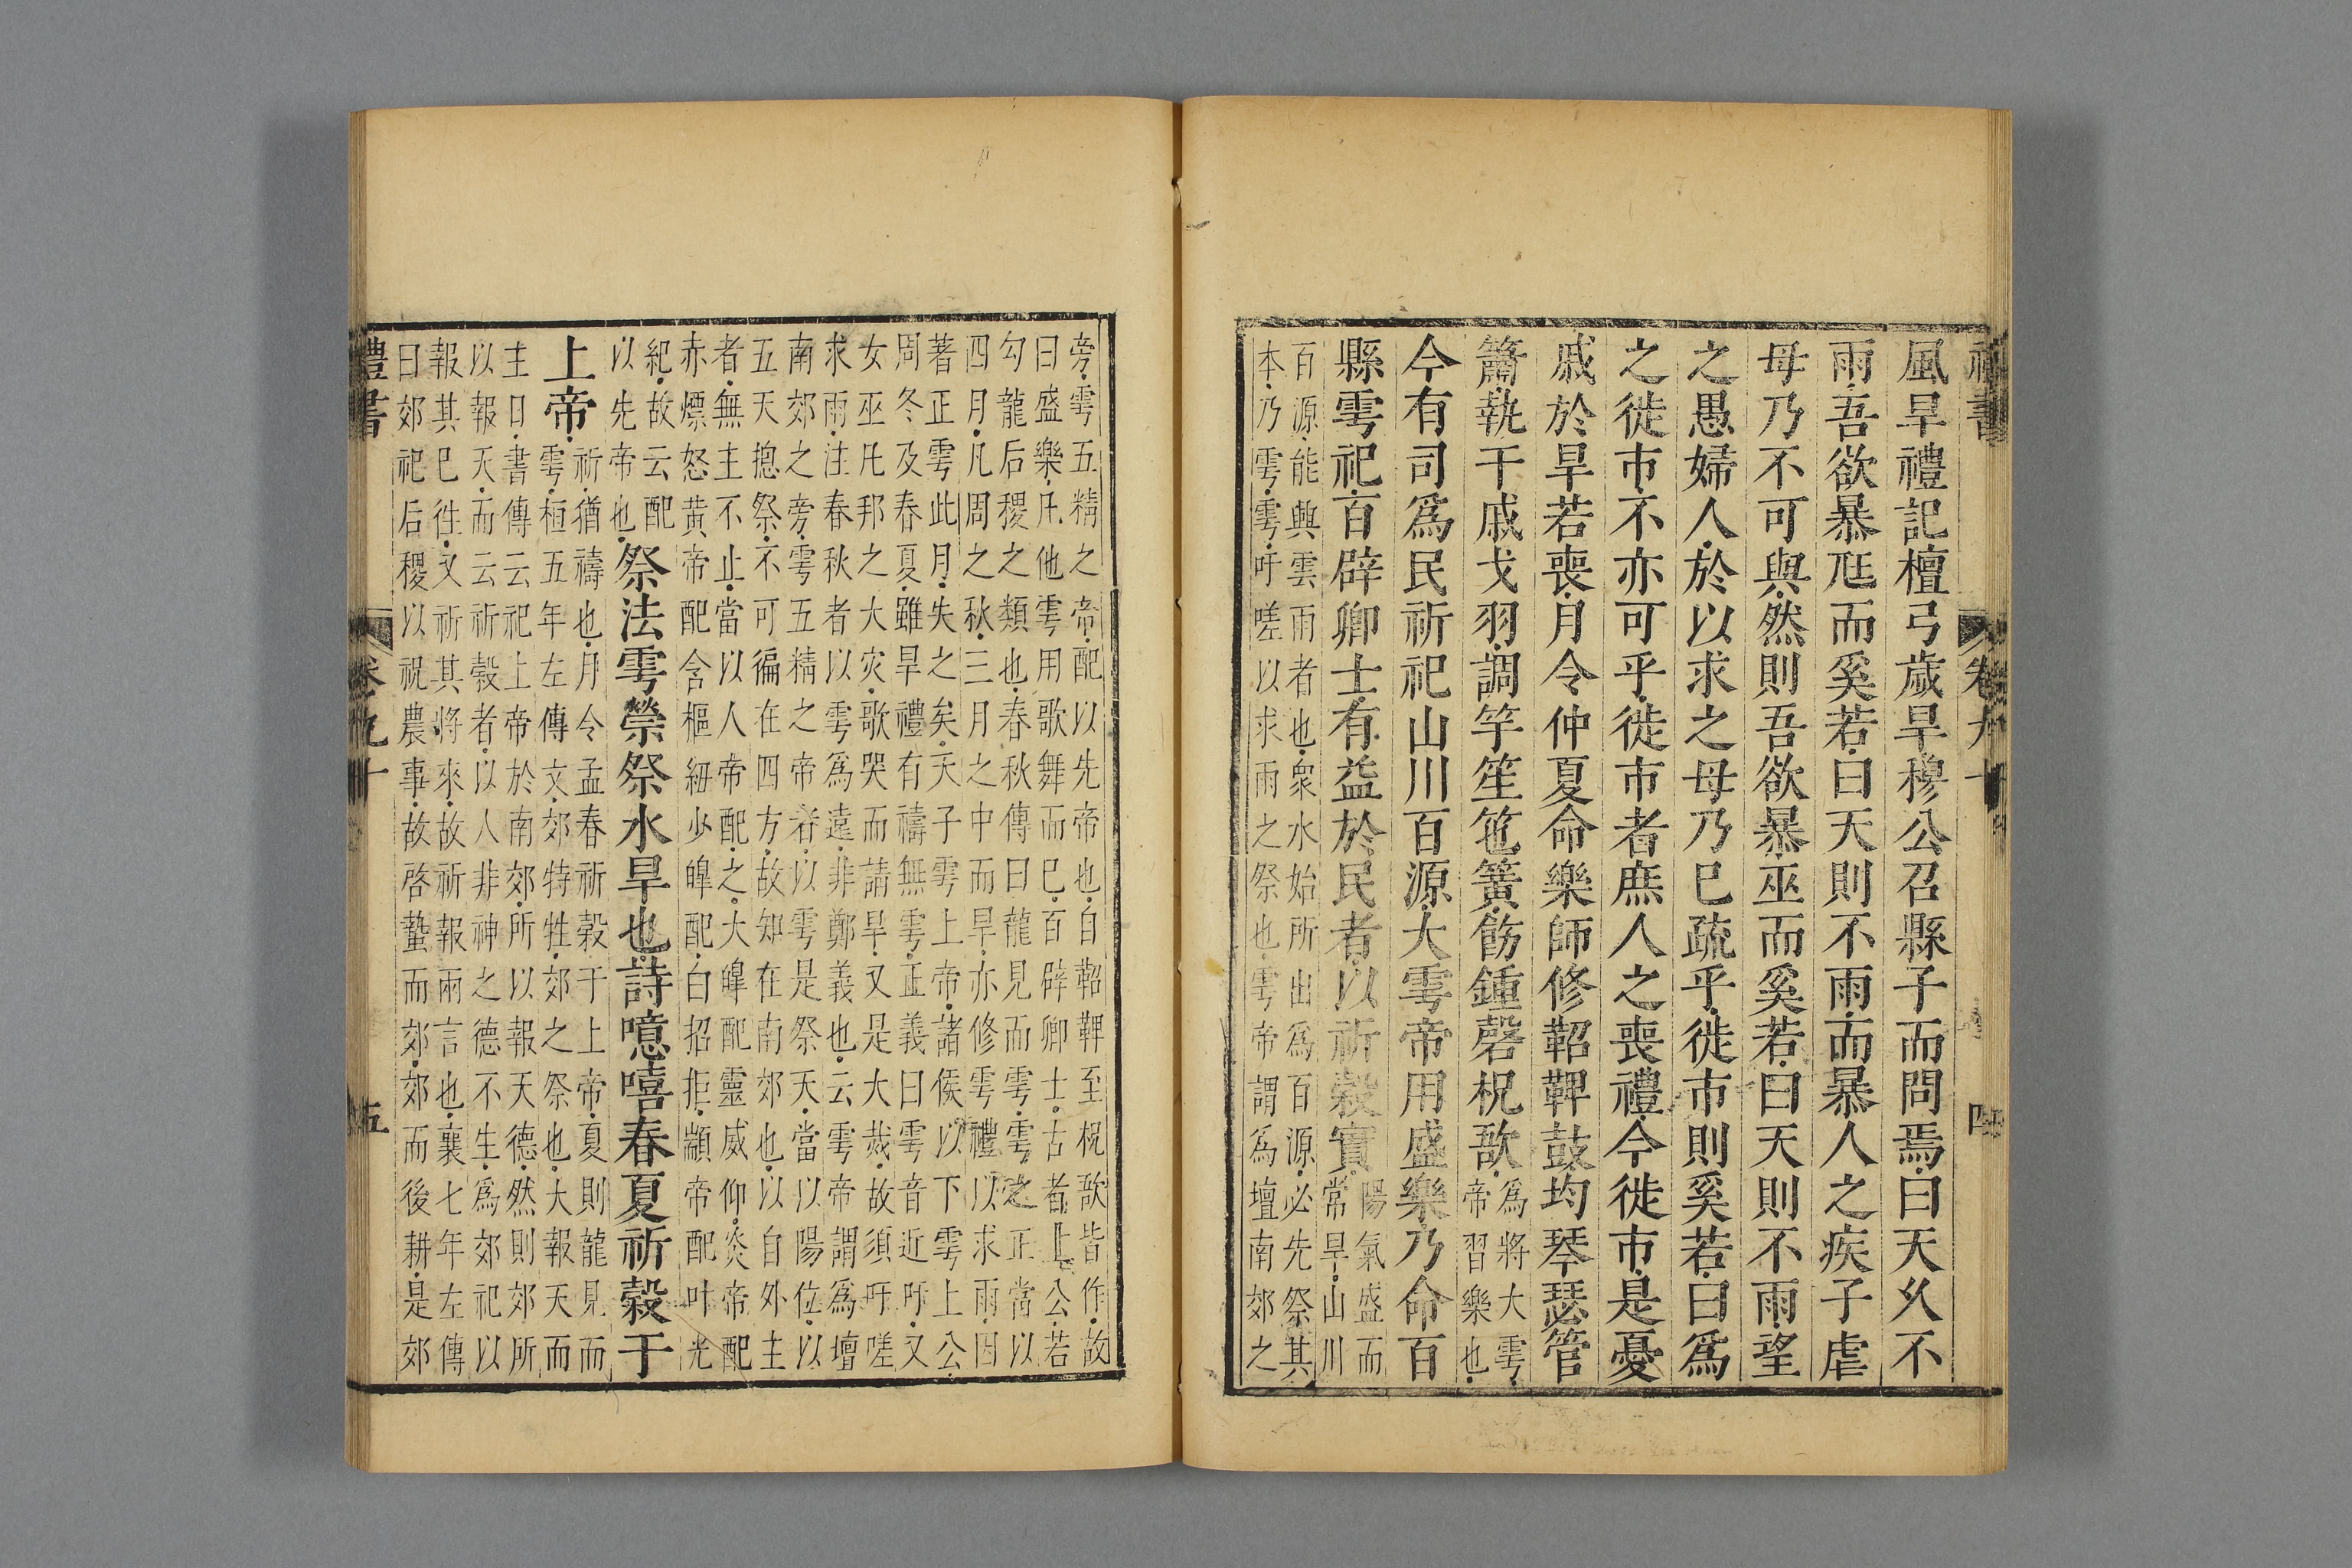 禮書 卷九十 四
風旱禮記檀弓歲旱穆公召縣子而問焉曰天久不
雨吾欲暴尫而奚若曰天則不雨而暴人之疾子虐
毋乃不可與然則吾欲暴巫而奚若曰天則不雨望
之愚婦人於以求之毋乃已疏乎徙市則奚若曰爲
之徙市不亦可乎徙市者庶人之喪禮今徙市是憂
戚於旱若喪月令仲夏命樂師修鞀鞞鼓均琴瑟管
簫執干戚戈羽調竽笙竾簧飭鍾磬柷敔
爲將大雩
帝習樂也
今有司爲民祈祀山川百源大雩帝用盛樂乃命百
縣雩祀百辟卿士有益於民者以祈穀實
陽氣盛而
常旱山川
百源能興雲雨者也衆水始所出爲百源必先祭其
本乃雩雩吁嗟以求雨之祭也雩帝謂爲壇南郊之
旁雩五精之帝配以先帝也自鞀鞞至柷敔皆作故
曰盛樂凡他雩用歌舞而已百辟卿士古者上公若
勾龍后稷之類也春秋傳曰龍見而雩雩之正當以
四月凡周之秋三月之中而旱亦修雩禮以求雨因
著正雩此月失之矣天子雩上帝諸侯以下雩上公
周冬及春夏雖旱禮有禱無雩正義曰雩音近吁又
女巫凡邦之大灾歌哭而請旱又是大烖故須吁嗟
求雨注春秋者以雩爲遠非鄭義也云雩帝謂爲壇
南郊之旁雩五精之帝者以雩是祭天當以陽位以
五天揔祭不可徧在四方故知在南郊也以自外主
者無主不止當以人帝配之大皥配靈威仰炎帝配
赤熛怒黃帝配含樞紐少皥配白招拒顓帝配叶光
紀故云配
以先帝也
祭法雩禜祭水旱也詩噫嘻春夏祈穀于
上帝
祈猶禱也月令孟春祈穀于上帝夏則龍見而
雩桓五年左傳文郊特牲郊之祭也大報天而
主日書傳云祀上帝於南郊所以報天德然則郊所
以報天而云祈穀者以人非神之德不生爲郊祀以
報其已往又祈其將來故祈報兩言也襄七年左傳
曰郊祀后稷以祝農事故啓蟄而郊郊而後耕是郊
禮書 卷九十 五